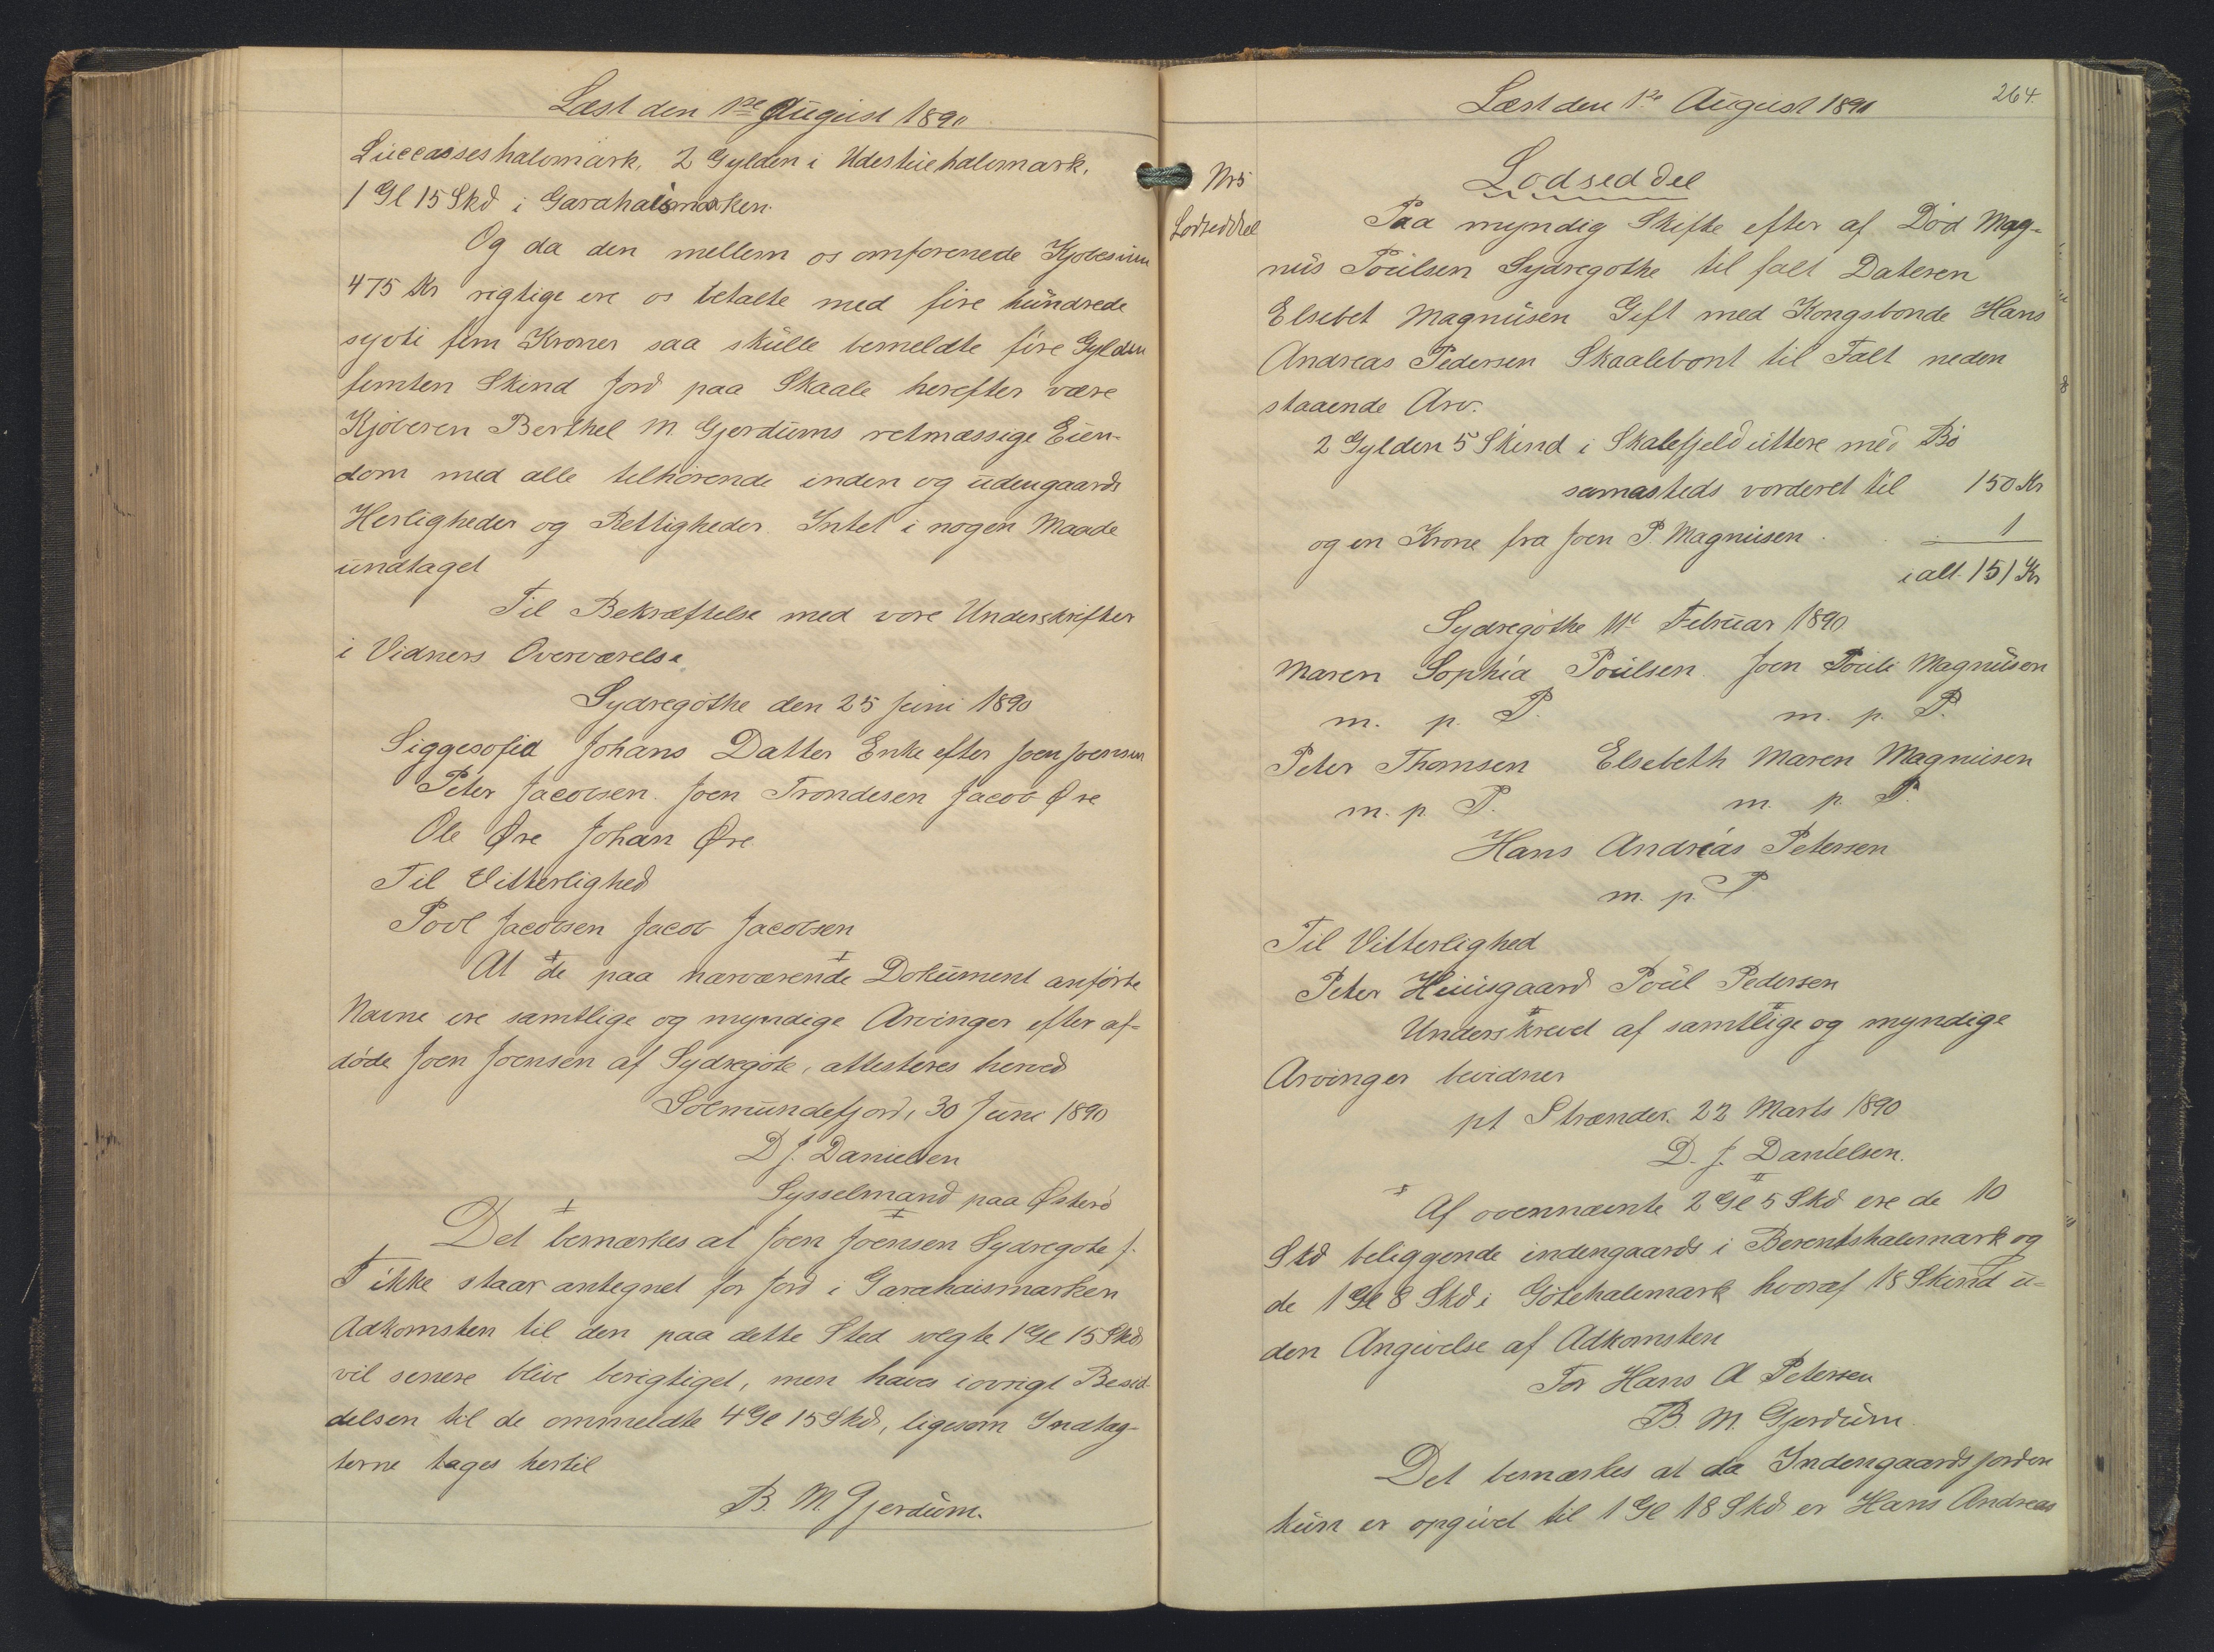 Læst den 1ste August 1890
Luccasseshalvmark, 2 Gylden i Udestuehalvmark,
1 Gl 15 Skd i Garahaismarken.
Og da den mellem os omforenede Kjøbesum
475 Kr rigtige ere os betalte med fire hundrede
syvti fem Kroner saa skulle bemeldte fire Gylden
femten Skind Jord paa Skaale herefter være
Kjøberen Berthel M. Gjerdums retmæssige Eien-
dom med alle tilhørende inden og udengaards
Herligheder og Rettigheder. Intet i nogen Maade
undtaget
Til Bekræftelse med vore Underskrifter
i Vidners Overværelse
Sydregøthe den 25 Juni 1890
Siggesofia Johans Datter Enke efter Joen Joensen
Peter Jacobsen. Joen Trondesen Jacob Øre
Ole Øre Johan Øre
Til Vitterlighed
Povl Jacobsen Jacob Jacobsen
At de paa nærværende Dokument anførte
Navne ere samtlige og myndige Arvinger efter af-
døde Joen Joensen af Sydregøte, attesteres herved
Solmundefjord, 30 Juni 1890
D J. Danielsen
Sysselmand paa Østerø
Det bemærkes at Joen Joensen Sydregote J.
T ikke staar antegnet for Jord i Garahaismarken
Adkomsten til den paa dette Sted solgte 1 Gl 15 Skd
vil senere blive berigtiget, men haves iøvrigt Besid-
delsen til de ommeldte 4 Gl 15 Skd, ligesom Indtæg-
terne tages hertil
B. M. Gjerdum.
264.
Læst den 1ste August 1890
Nr 5
Lodseddel
Lodseddel
Paa myndig Skifte efter af Død Mag-
nus Poulsen Sydregøthe til falt Dateren
Elsebet Magnusen Gift med Kongsbonde Hans
Andreas Pedersen Skaalebont til Falt neden
staaende Arv.
2 Gylden 5 Skind i Skalefjeld uttere med Bø
samasteds vorderet til 150 Kr
og en Krone fra Joen P. Magnusen . . 1
i alt 151 Kr
Sydregøthe 11te Februar 1890
Maren Sophia Poulsen. Joen Pouli Magnusen
m. p. P. m. p. P.
Peter Thomsen Elsebeth Maren Magnusen
m. p. P. m. p. P.
Hans Andreas Petersen
m. p. P
Til Vitterlighed
Peter Huusgaard Poul Pedersen
Underskrevet af samtlige og myndige
Arvinger bevidner
pt Strander. 22 Marts 1890
D. J. Danielsen.
Af ovennævnte 2 Gl 5 Skd ere de 10
Skd beliggende indengaards i Berentshalvmark og
de 1 Gl 8 Skd i Gøtehalvmark hvoraf 18 Skind u-
den Angivelse af Adkomsten
For Hans A Petersen
B. M. Gjerdum.
Det bemærkes at da Indengaardsjorden
kun er opgivet til 1 Gl 18 Skd er Hans Andreas